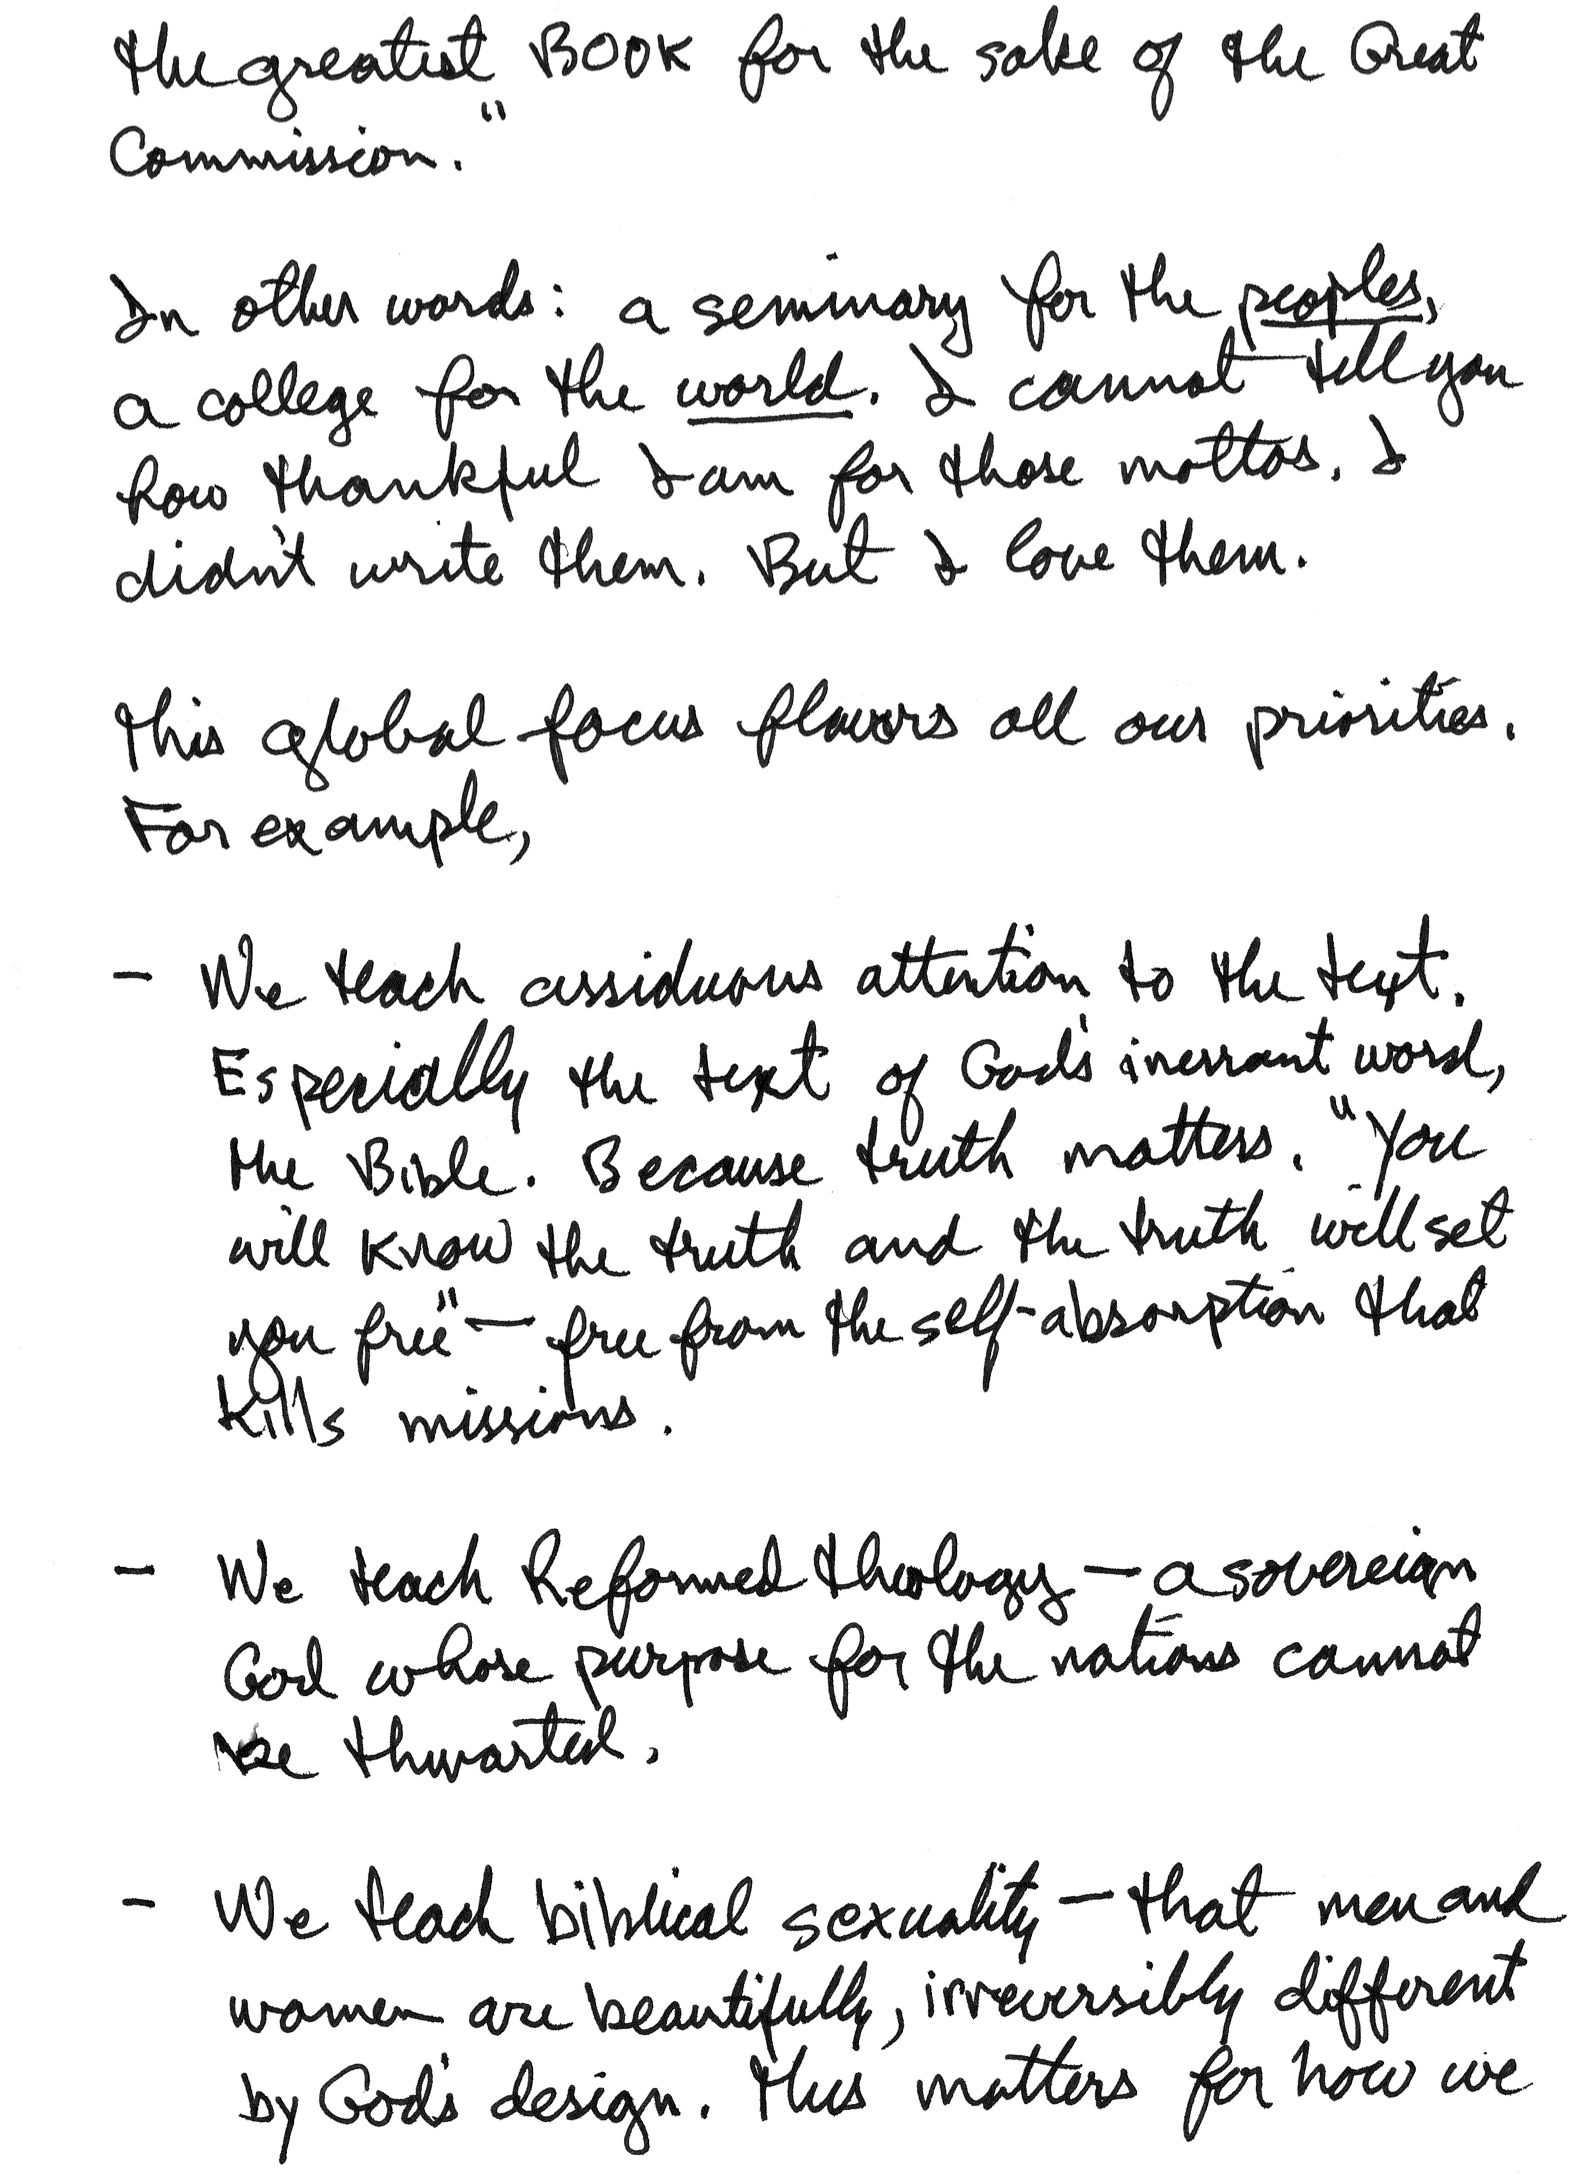 the greatest BOOK for the sake of the Great
Commission."
In other words: a seminary for the peoples,
a college for the world. I cannot tell you
how thankful I am for those mottos. I
didn't write them. But I love them.
This global focus flavors all our priorities.
For example,
- We teach assiduous attention to the text.
Especially the text of God's inerrant word,
the Bible. Because truth matters. "You
will know the truth and the truth will set
you free" — free from the self-absorption that
kills missions.
- We teach Reformed theology — a sovereign
God whose purpose for the nations cannot
be thwarted.
- We teach biblical sexuality — that men and
women are beautifully, irreversibly different
by God's design. This matters for how we